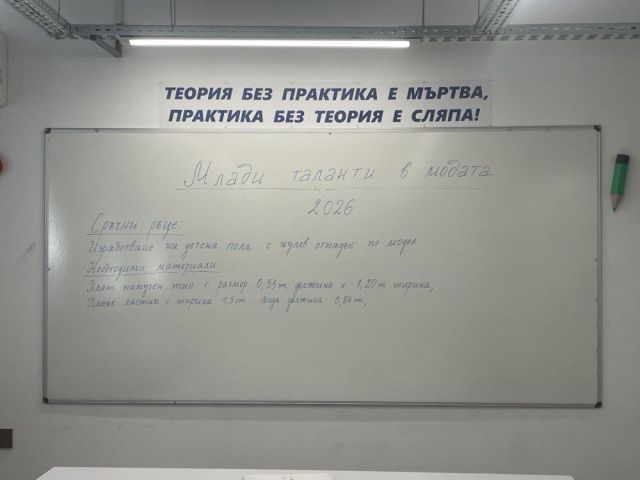 ТЕОРИЯ БЕЗ ПРАКТИКА Е МЪРТВА,
ПРАКТИКА БЕЗ ТЕОРИЯ Е СЛЯПА!
Млади таланти в модата
2026
Сръчни ръце:
Изработване на детска пола с нулев отпадък по модел
Необходими материали:
Плат памучен тип с размер 0,55m дължина x 1,20m ширина,
ластик с ширина 1,5cm - дължина 0,84m,